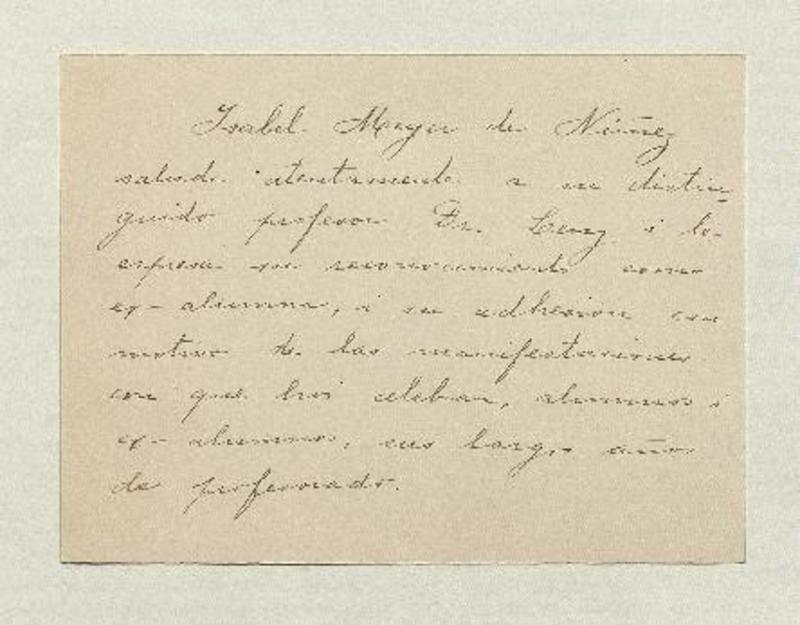 Isabel Meyer de Núñez
saluda atentamente a su distin
guido profesor Dr. Lenz i le
expresa su reconocimiento como
ex-alumna, i su adhesion con
motivo de las manifestaciones
con que hoi celebran, alumnos i
ex-alumnos, sus largos años
de profesorado.